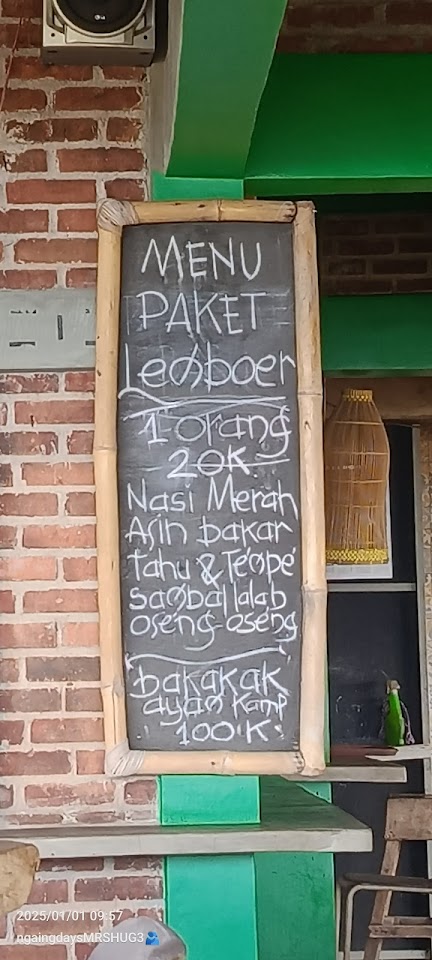 LG
MENU
PAKET
Lemboer
1 orang
20K
Nasi Merah
Asin bakar
Tahu & Tempe
sambal lalab
oseng-oseng
bakakak
ayam kamp
100K
2025/01/01 09:57
ngaingdaysMRSHUG3🫂